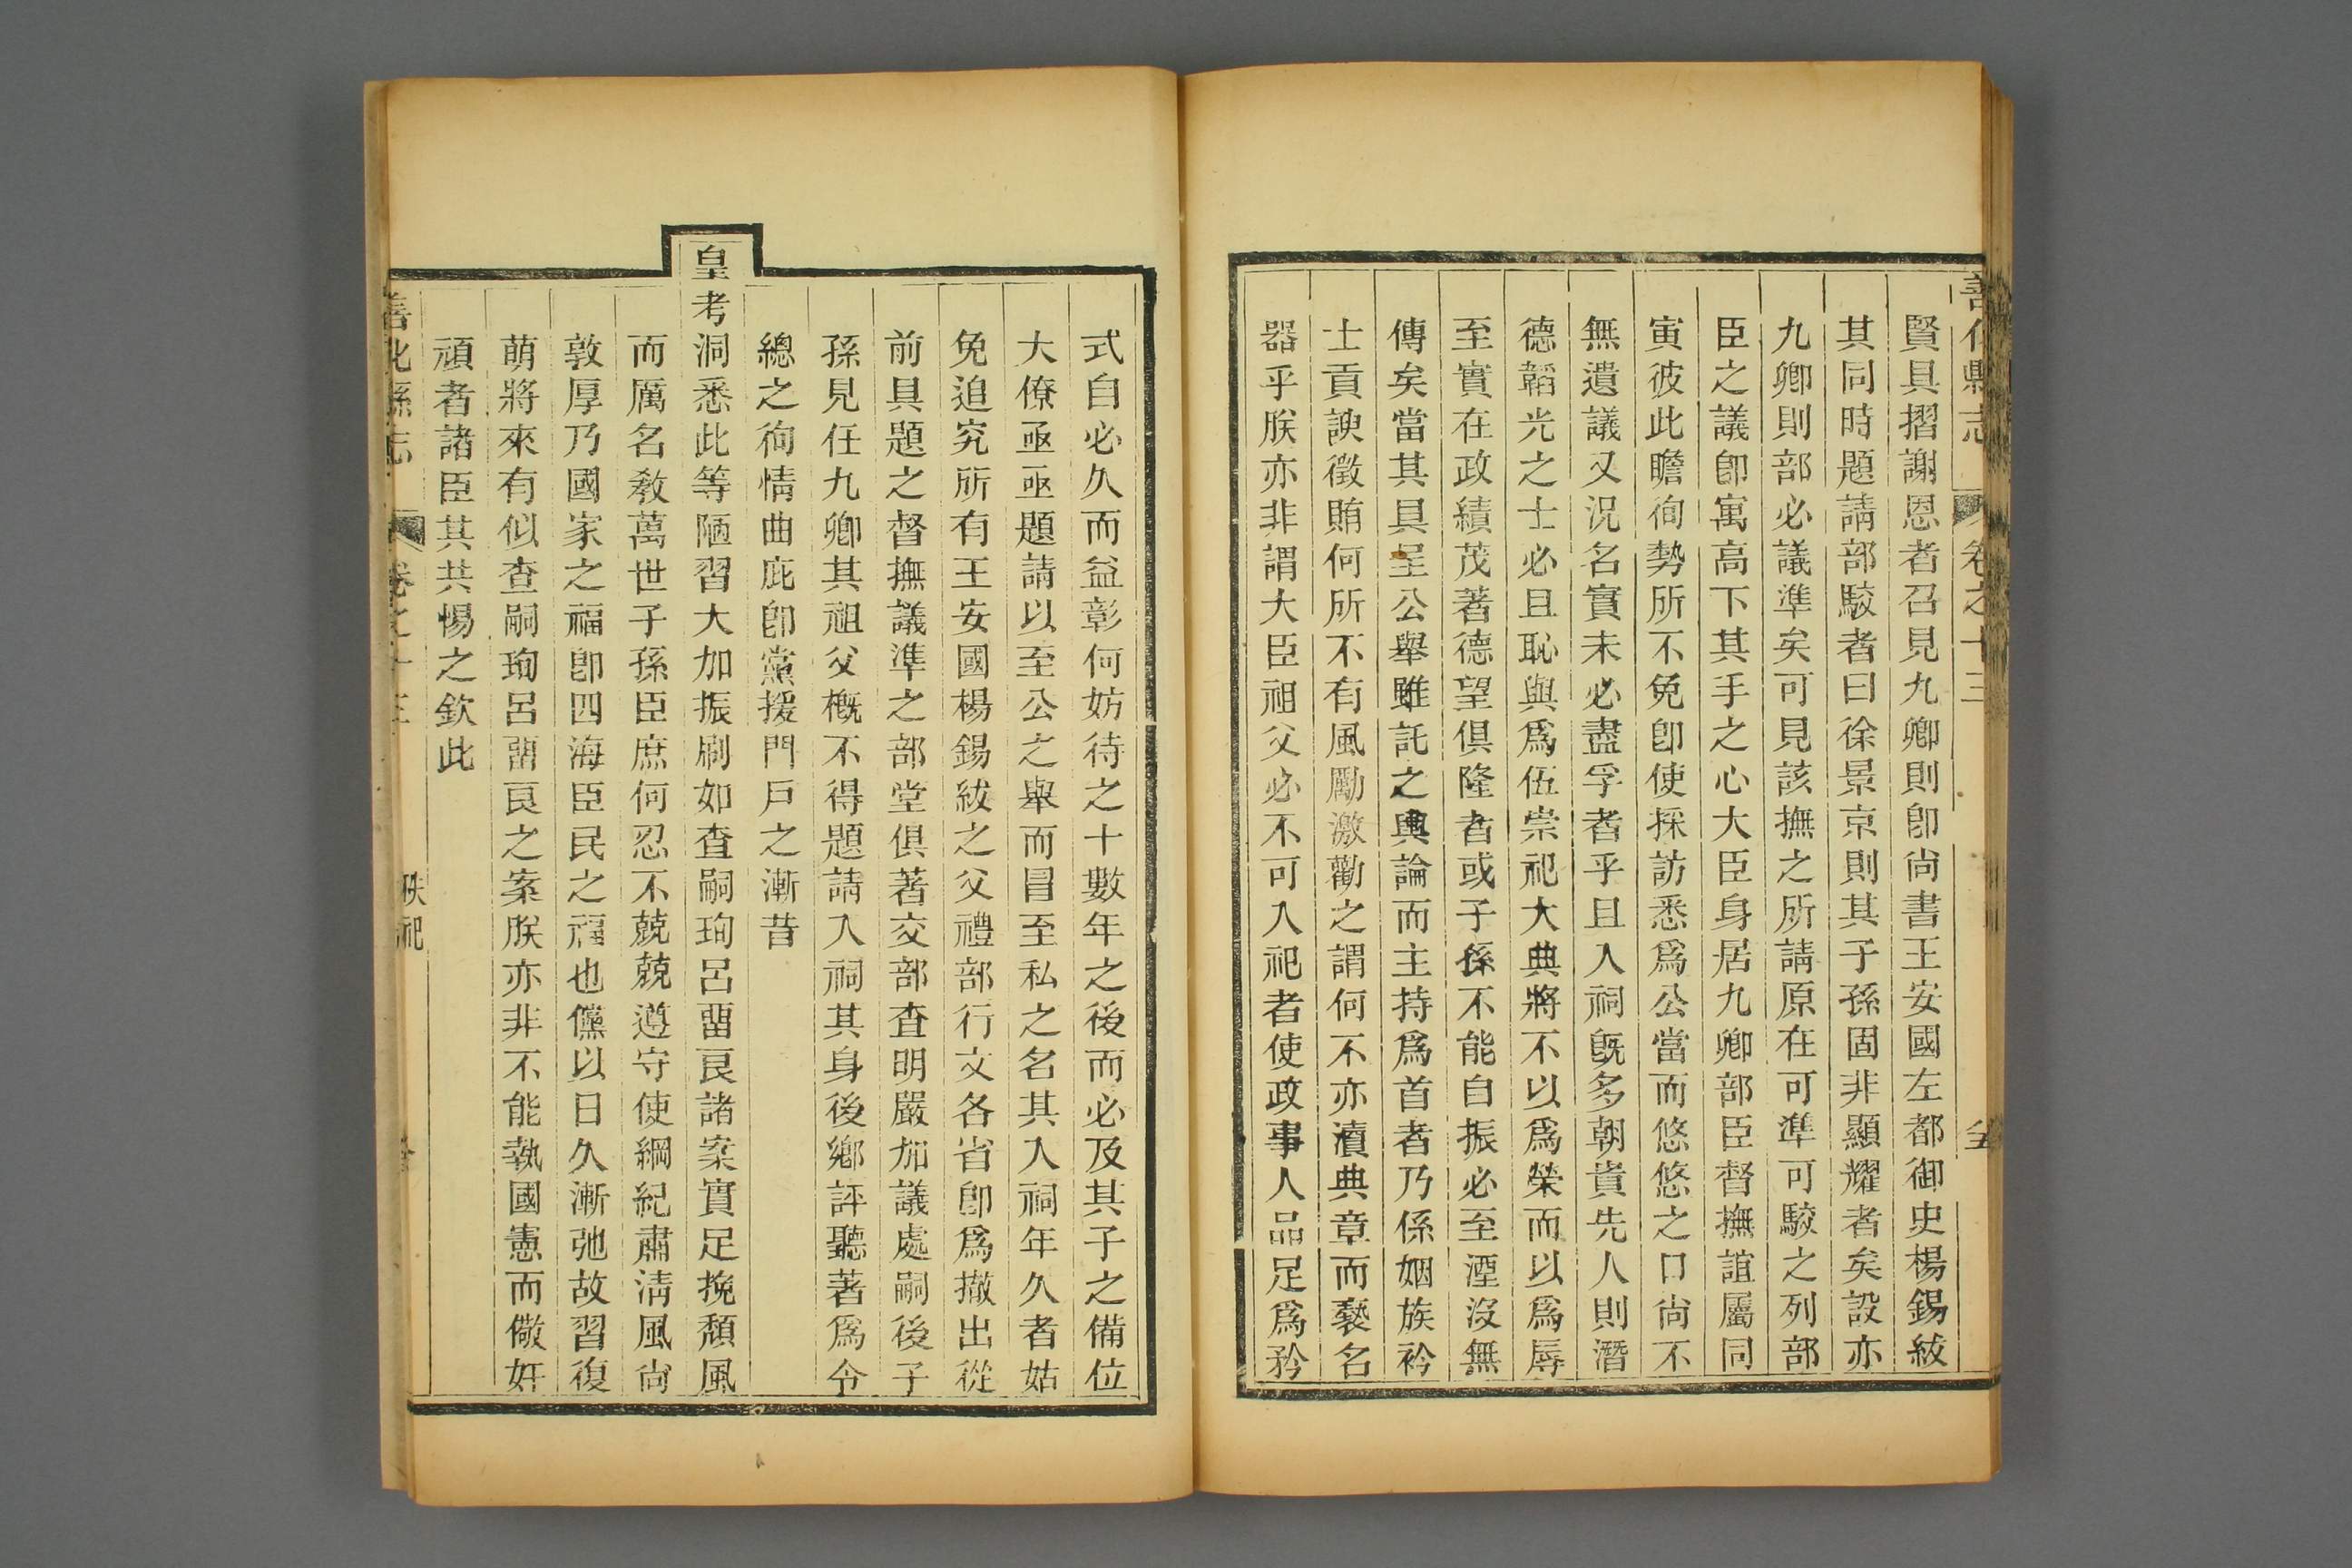 善化縣志 卷之十三
賢具摺謝恩者召見九卿則卽尚書王安國左都御史楊錫紱
其同時題請部駮者曰徐景京則其子孫固非顯耀者矣設亦
九卿則部必議準矣可見該撫之所請原在可準可駮之列部
臣之議卽寓高下其手之心大臣身居九卿部臣督撫誼屬同
寅彼此瞻徇勢所不免卽使採訪悉爲公當而悠悠之口尙不
無遺議又況名實未必盡孚者乎且入祠旣多朝貴先人則潛
德韜光之士必且恥與爲伍崇祀大典將不以爲榮而以爲辱
至實在政績茂著德望俱隆者或子孫不能自振必至湮沒無
傳矣當其具呈公舉雖託之輿論而主持爲首者乃係姻族衿
士貢諛徵賄何所不有風勵激勸之謂何不亦瀆典章而褻名
器乎朕亦非謂大臣祖父必不可入祀者使政事人品足爲矜
式自必久而益彰何妨待之十數年之後而必及其子之備位
大僚亟亟題請以至公之舉而冒至私之名其入祠年久者姑
免追究所有王安國楊錫紱之父禮部行文各省卽爲撤出從
前具題之督撫議準之部堂俱著交部查明嚴加議處嗣後子
孫見任九卿其祖父槪不得題請入祠其身後鄉評聽著爲令
總之徇情曲庇卽黨援門戶之漸昔
皇考洞悉此等陋習大加振刷如查嗣珣呂畱良諸案實足挽頹風
而厲名教萬世子孫臣庶何忍不兢兢遵守使綱紀肅淸風尙
敦厚乃國家之福卽四海臣民之福也儻以日久漸弛故習復
萌將來有似查嗣珣呂畱良之案朕亦非不能執國憲而儆奸
頑者諸臣其共惕之欽此
善化縣志 卷之十三 秩祀